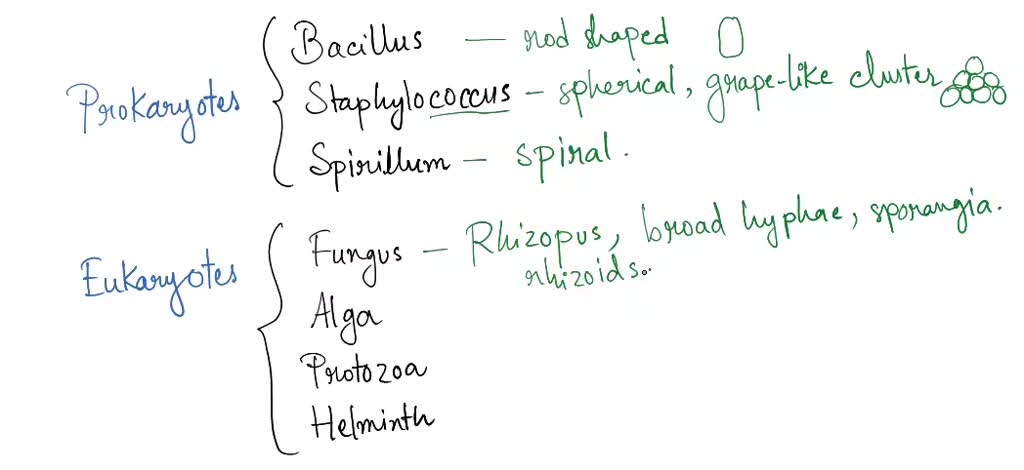 Prokaryotes
Bacillus — rod shaped
Staphylococcus – spherical, grape-like cluster
Spirillum – spiral.
Eukaryotes
Fungus – Rhizopus, broad hyphae, sporangia.
rhizoids..
Alga
Protozoa
Helminth